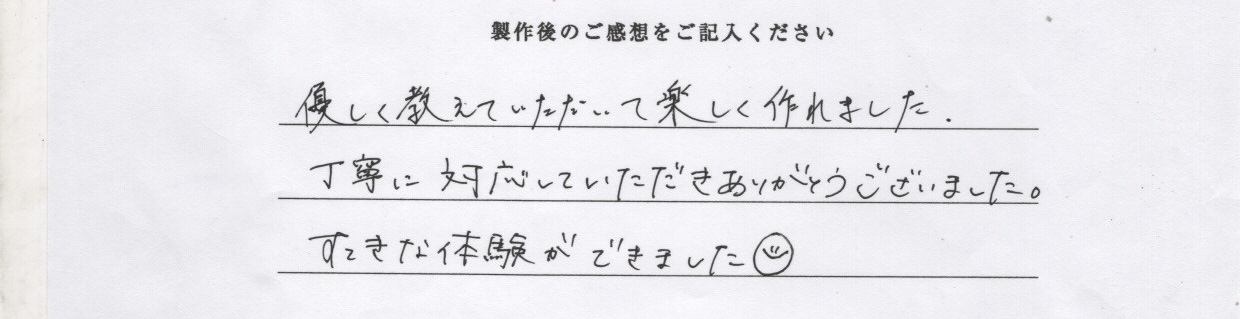 製作後のご感想をご記入ください
優しく教えていただいて楽しく作れました.
丁寧に対応していただきありがとうございました。
すてきな体験ができました☺